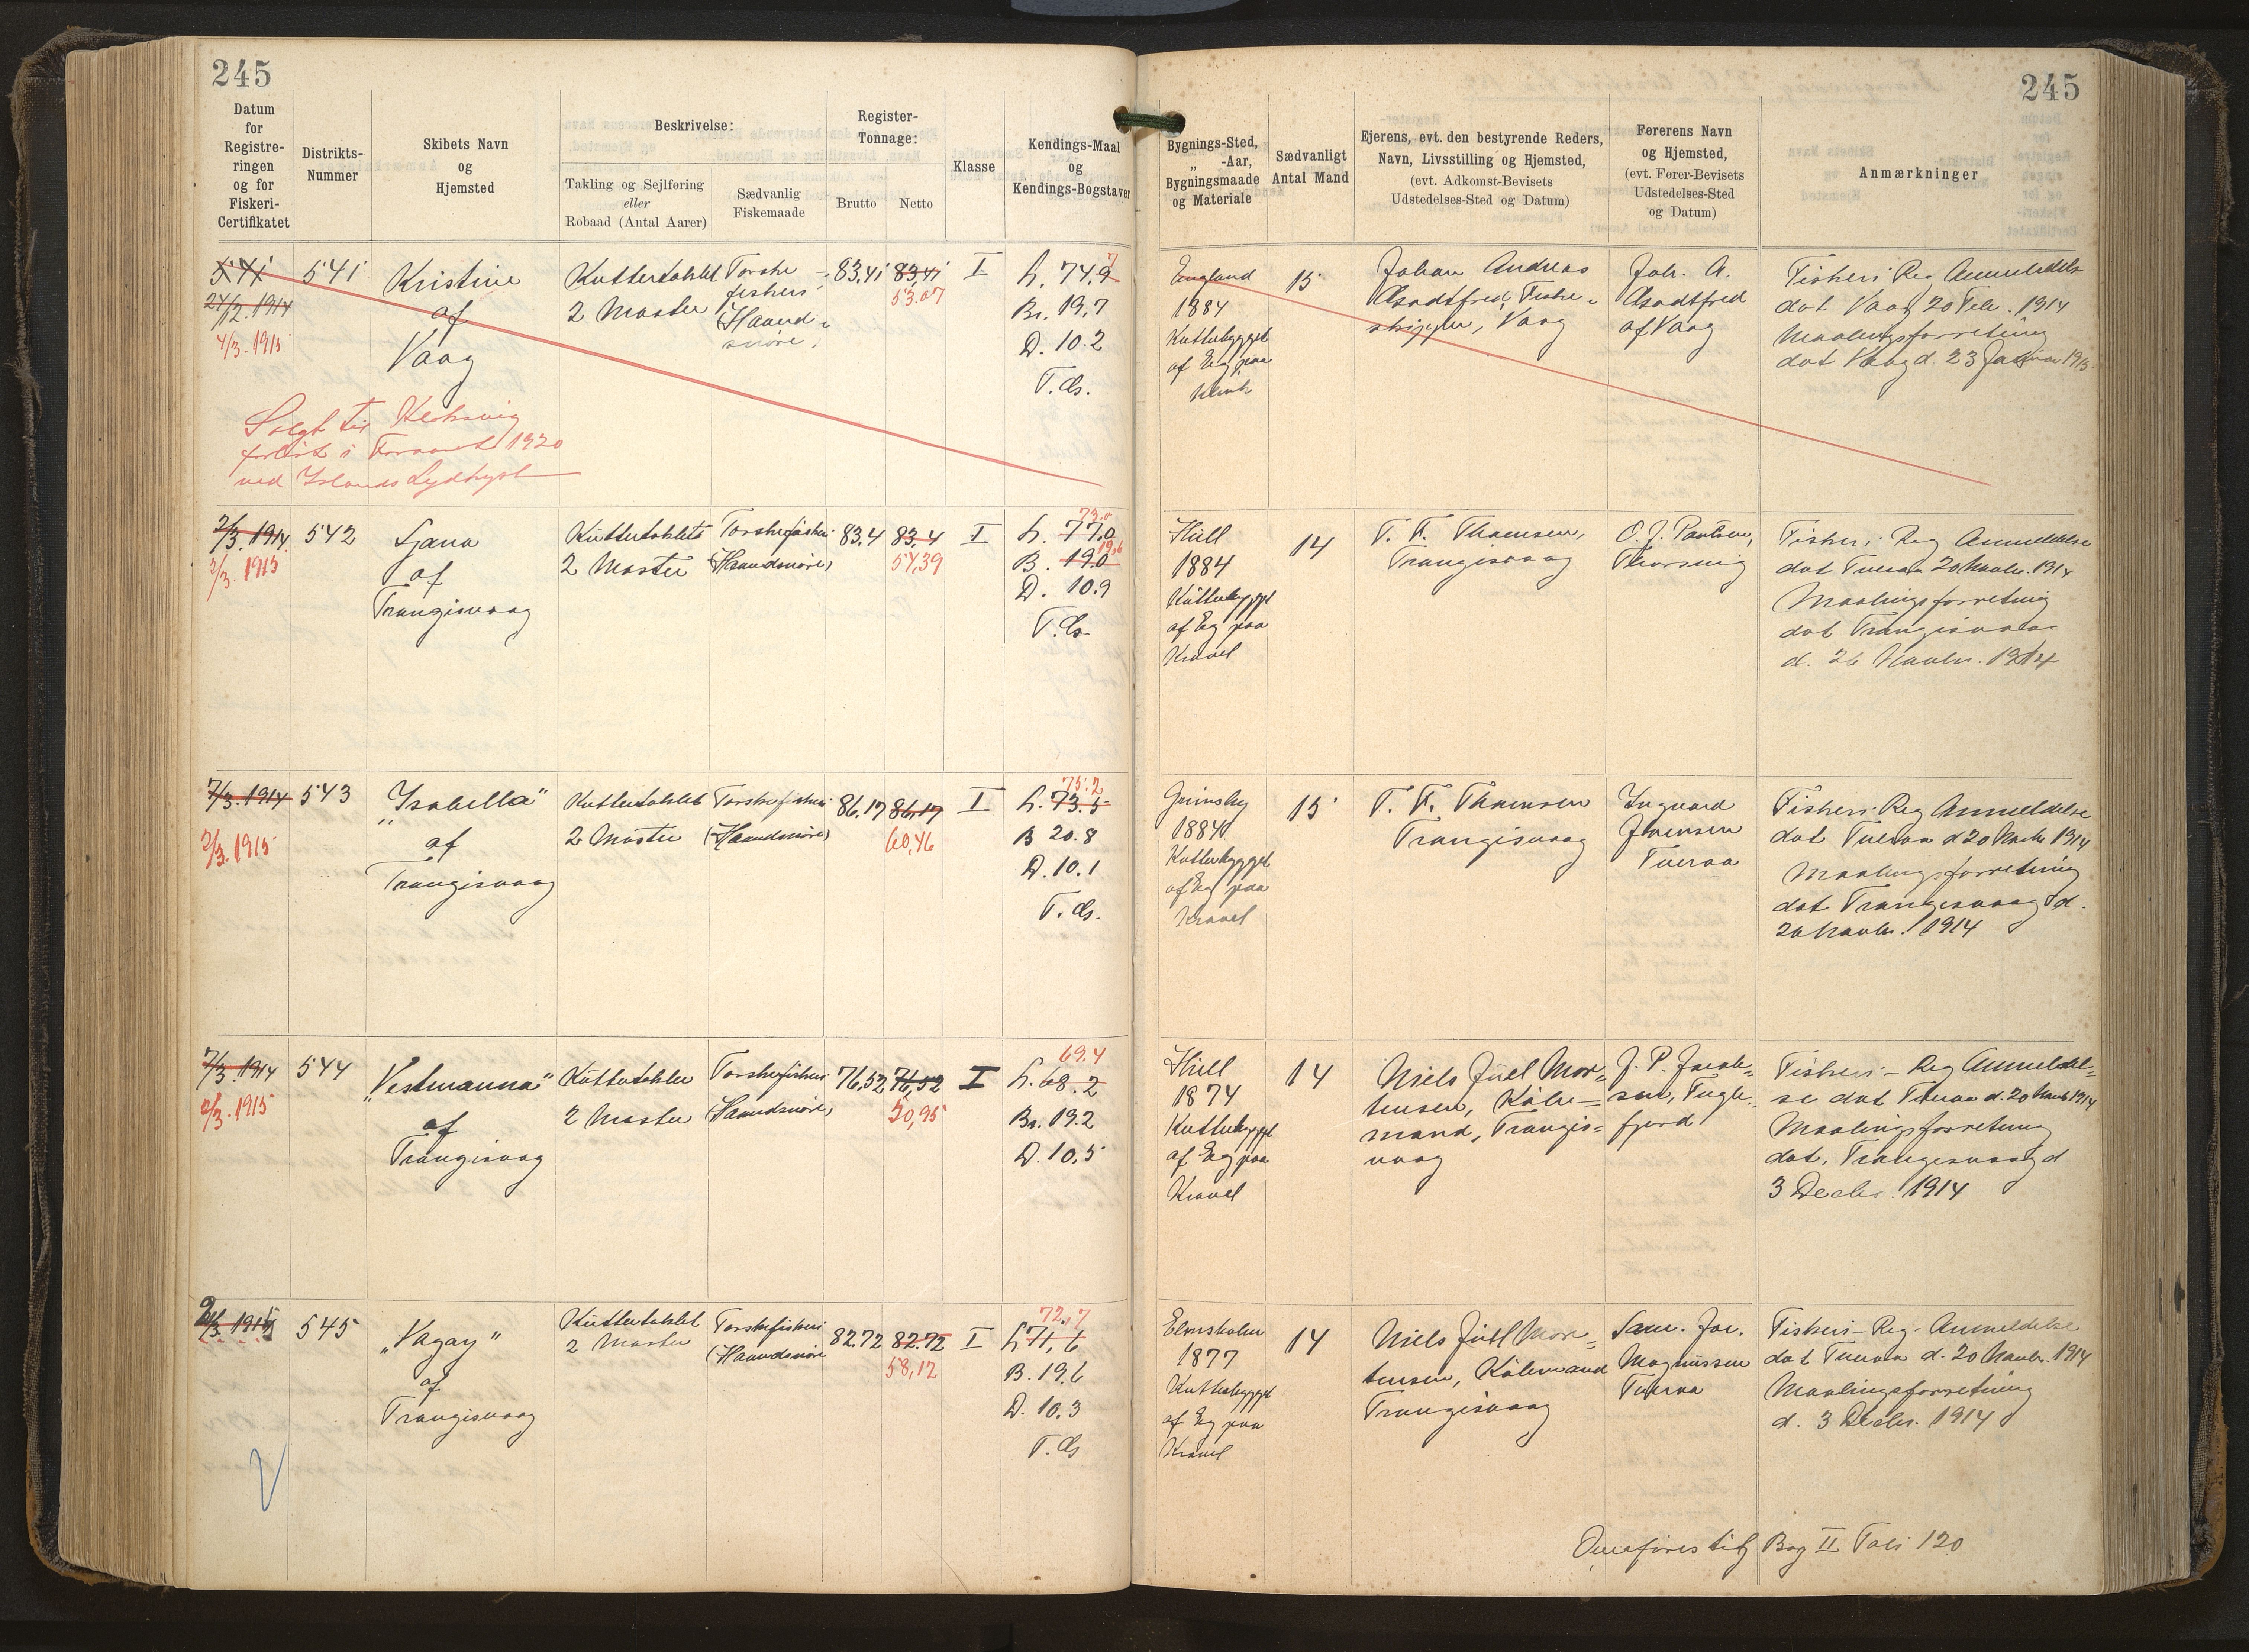 245
245
Datum
for
Registre-
ringen
og for
Fiskeri-
Certifikatet
Distrikts-
Nummer
Skibets Navn
og
Hjemsted
Beskrivelse:
Takling og Sejlføring
eller
Robaad (Antal Aarer)
Sædvanlig
Fiskemaade
Register-
Tonnage:
Brutto
Netto
Klasse
Kendings-Maal
og
Kendings-Bogstaver
Bygnings-Sted,
„ -Aar,
Bygningsmaade
og Materiale
Sædvanligt
Antal Mand
Ejerens, evt. den bestyrende Reders,
Navn, Livsstilling og Hjemsted,
(evt. Adkomst-Bevisets
Udstedelses-Sted og Datum)
Førerens Navn
og Hjemsted,
(evt. Fører-Bevisets
Udstedelses-Sted
og Datum)
Anmærkninger
541
24/12. 1914
4/3. 1915
541
Kristine
af
Vaag
Kuttertaklet
2 Master
Torske-
fiskeri
(Haand-
snøre)
83,41
83,41
53.07
I
L. 74,9
7
Br. 19,7
D. 10.2
England
1884
Kutterbygget
af Eg paa
Klink
15
Johan Andreas
Fiske-
skipper, Vaag
Joh. A.
af Vaag
Fiskeri Reg Anmeldelse
dat Vaag 20 Feb. 1914
Maalingsforretning
dat Vaag d. 23 Januar 1915
Solgt til Klaksvig
forlist i Foraaret 1920
ved Islands Sydkyst
2/3. 1914
2/3. 1915
542
Sjana
af
Trangisvaag
Kuttertaklet
2 Master
Torskefiskeri
(Haandsnøre)
83.4
83,4
54,39
I
73.0
L. 77.0
19,6
B. 19.0
D. 10.9
Hull
1884
Kutterbygget
af Eg paa
Kravel
14
T. F. Thomsen,
Trangisvaag
O. J. Poulsen,
Fiskeri Reg Anmeldelse
dat Tveraa 20 Novbr. 1914
Maalingsforretning
dat Trangisvaag
d. 26 Novbr. 1914
7/3. 1914
2/3. 1915
543
„Isabella"
af
Trangisvaag
Kuttertaklet
2 Master
Torskefiskeri
(Haandsnøre)
86,17
86,17
60,46
I
75.2
L. 73.5
B 20.8
D. 10.1
Grimsby
1884
Kutterbygget
af Eg paa
Kravel
15
T. F. Thomsen
Trangisvaag
Ingvard
Joensen
Tveraa
Fiskeri Reg Anmeldelse
dat Tveraa d 20 Novbr 1914
Maalingsforretning
dat Trangisvaag d.
26 Novbr. 1914
7/3. 1914
2/3. 1915
544
„Vestmanna"
af
Trangisvaag
Kuttertaklet
2 Master
Torskefiskeri
(Haandsnøre)
76,52
76,52
50,95
I
69.4
L. 68.2
Br. 19.2
D. 10,5
Hull
1874
Kutterbygget
af Eg paa
Kravel
14
Niels Juel Mor-
tensen, Købe-
mand, Trangis-
vaag
J. P. Jacob-
sen, Fugle-
fjord
Fiskeri- Reg Anmeldel-
se dat Tveraa d. 20 Novb 1914
Maalingsforretning
dat. Trangisvaag d
3 Decbr. 1914
2/3. 1915
545
„Vagay"
af
Trangisvaag
Kuttertaklet
2 Master
Torskefiskeri
(Haandsnøre
82.72
82.72
58,12
I
72,7
L 71,6
B. 19.6
D. 10.3
Elmsholm
1877
Kutterbygget
af Eg paa
Kravel
14
Niels Juel Mor-
tensen, Købmand
Trangisvaag
Sam. Joe.
Magnussen
Tveraa
Fiskeri- Reg- Anmeldelse
dat Tveraa d. 20 Novbr. 1914
Maalingsforretning
d. 3 Decbr. 1914
Overføres til Bog II Foli 120